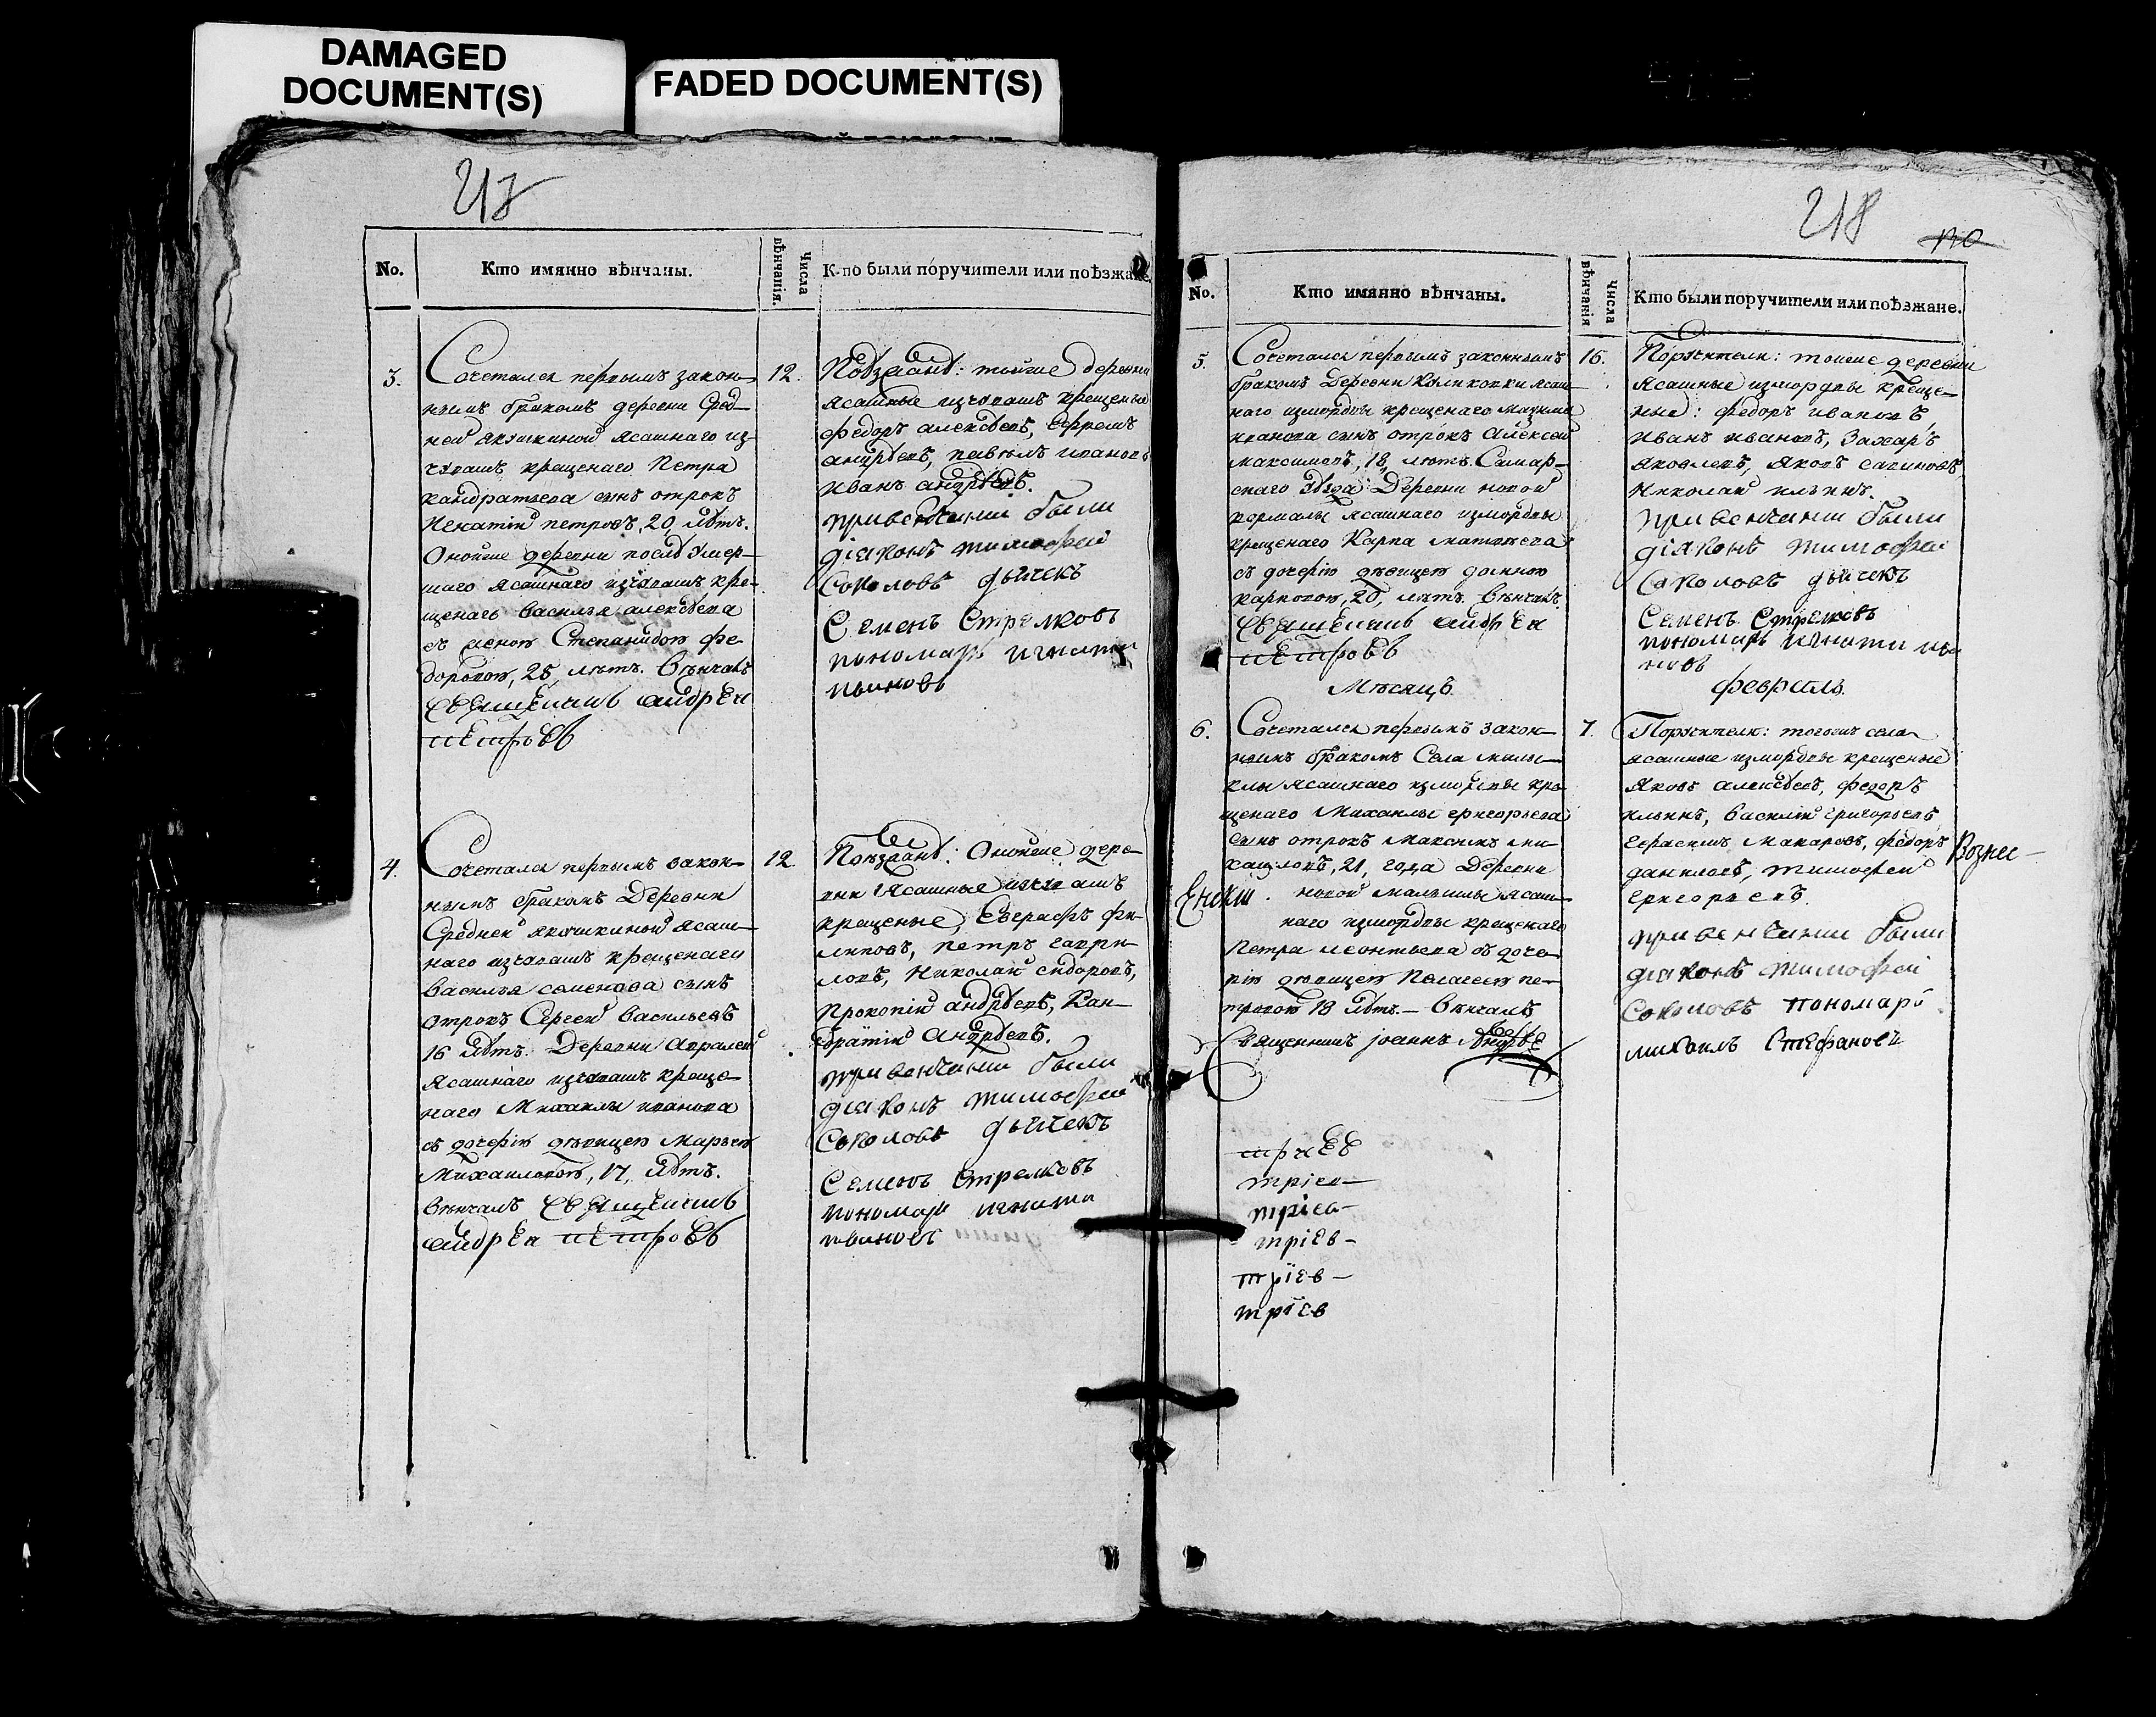 DAMAGED
DOCUMENT(S)
FADED DOCUMENT(S)
217
No.
Кто имянно вѣнчаны.
Числа вѣнчанія.
К по были поручители или поѣзжане.
3.
Сочетался первымъ закон-
нымъ бракомъ деревни Сред-
ней Якушкиной ясашнаго из-
чувашъ крещенаго Петра
кандратьева сынъ отрокъ
Игнатій петровъ, 20, лѣтъ.
Оной же деревни послѣ умер-
шаго ясашнаго изчувашъ кре-
щенаго Василья алексѣева
съ женою Степанидою фе-
доровою, 25, лѣтъ. Вѣнчалъ
священникъ андреи
петровъ
12.
Поѣзжанѣ: тойже деревни
ясашные изчувашъ крещеные
федоръ алексѣевъ, Ефремъ
андрѣевъ, павелъ ивановъ
иванъ андрѣевъ.
при венчании были
діаконъ тимофей
Соколовъ дьячекъ
Семенъ Стрелковъ
пономарь игнати
ивановъ
4.
Сочетался первымъ закон-
нымъ бракомъ Деревни
Средней якушкиной ясаш-
наго изчувашъ крещенаго
Василья семенова сынъ
отрокъ Сергей Васильевъ
16 лѣтъ. Деревни Авралей
ясашнаго изчувашъ креще-
наго Михаилы иванова
съ дочерію дѣвицею Марьею
Михаиловою, 17, лѣтъ.
Вѣнчалъ священникъ
андреи петровъ
12
Поѣзжанѣ: Онойже дере-
вни Ясашные изчувашъ
крещеные, Евграфъ фи-
липовъ, петръ гаври-
ловъ, Николай сидоровъ,
Прокопій андрѣевъ, Кан-
дратій Андрѣевъ.
при венчании были
діаконъ тимофей
Соколовъ дьячекъ
Семенъ Стрелковъ
пономарь игнати
ивановъ
218
No.
Кто имянно вѣнчаны.
Числа вѣнчанія
Кто были поручители или поѣзжане.
5.
Сочетался первымъ законнымъ
бракомъ Деревни Куликовки ясаш-
наго измордвы крещенаго максима
иванова сынъ отрокъ Алексей
максимовъ, 18, лѣтъ. Самар-
скаго уѣзда Деревни новой
кармалы ясашнаго измордвы
крещенаго Карпа матвѣева
съ дочерію дѣвицею домною
карповою, 20, лѣтъ. Вѣнчалъ
священникъ андреи
петровъ
Мѣсяцъ
16.
Поручители: тойже деревни
ясашные измордвы креще-
ные: федоръ ивановъ,
иванъ ивановъ, Захаръ
яковлевъ, яковъ савиновъ,
Николай ильинъ.
при венчании были
діаконъ тимофей
Соколовъ дьячекъ
Семенъ Стрелковъ
пономарь игнати ива
новъ
февраль.
6.
Сочетался первымъ закон-
нымъ бракомъ Села малы-
клы ясашнаго измордвы кре
щенаго Михаилы григорьева
сынъ отрокъ Максимъ ми-
хаиловъ, 21, года Деревни
новой малыклы ясаш-
наго измордвы крещенаго
Петра леонтьева съ доче-
рію дѣвицею Пелагеею пе-
тровою 18 лѣтъ. - Вѣнчалъ
Священникъ Iоаннъ
7.
Поручители: тогожъ села
ясашные измордвы крещеные
Яковъ алексѣевъ, федоръ
ильинъ, василій григорьевъ
герасимъ макаровъ, федоръ
даниловъ, тимофей
григорьевъ.
при венчании были
діаконъ тимофей
Соколовъ пономарь
михаилъ Стефановъ
Вознес-
тріев-
тріев-
тріев-
тріев-
тріев